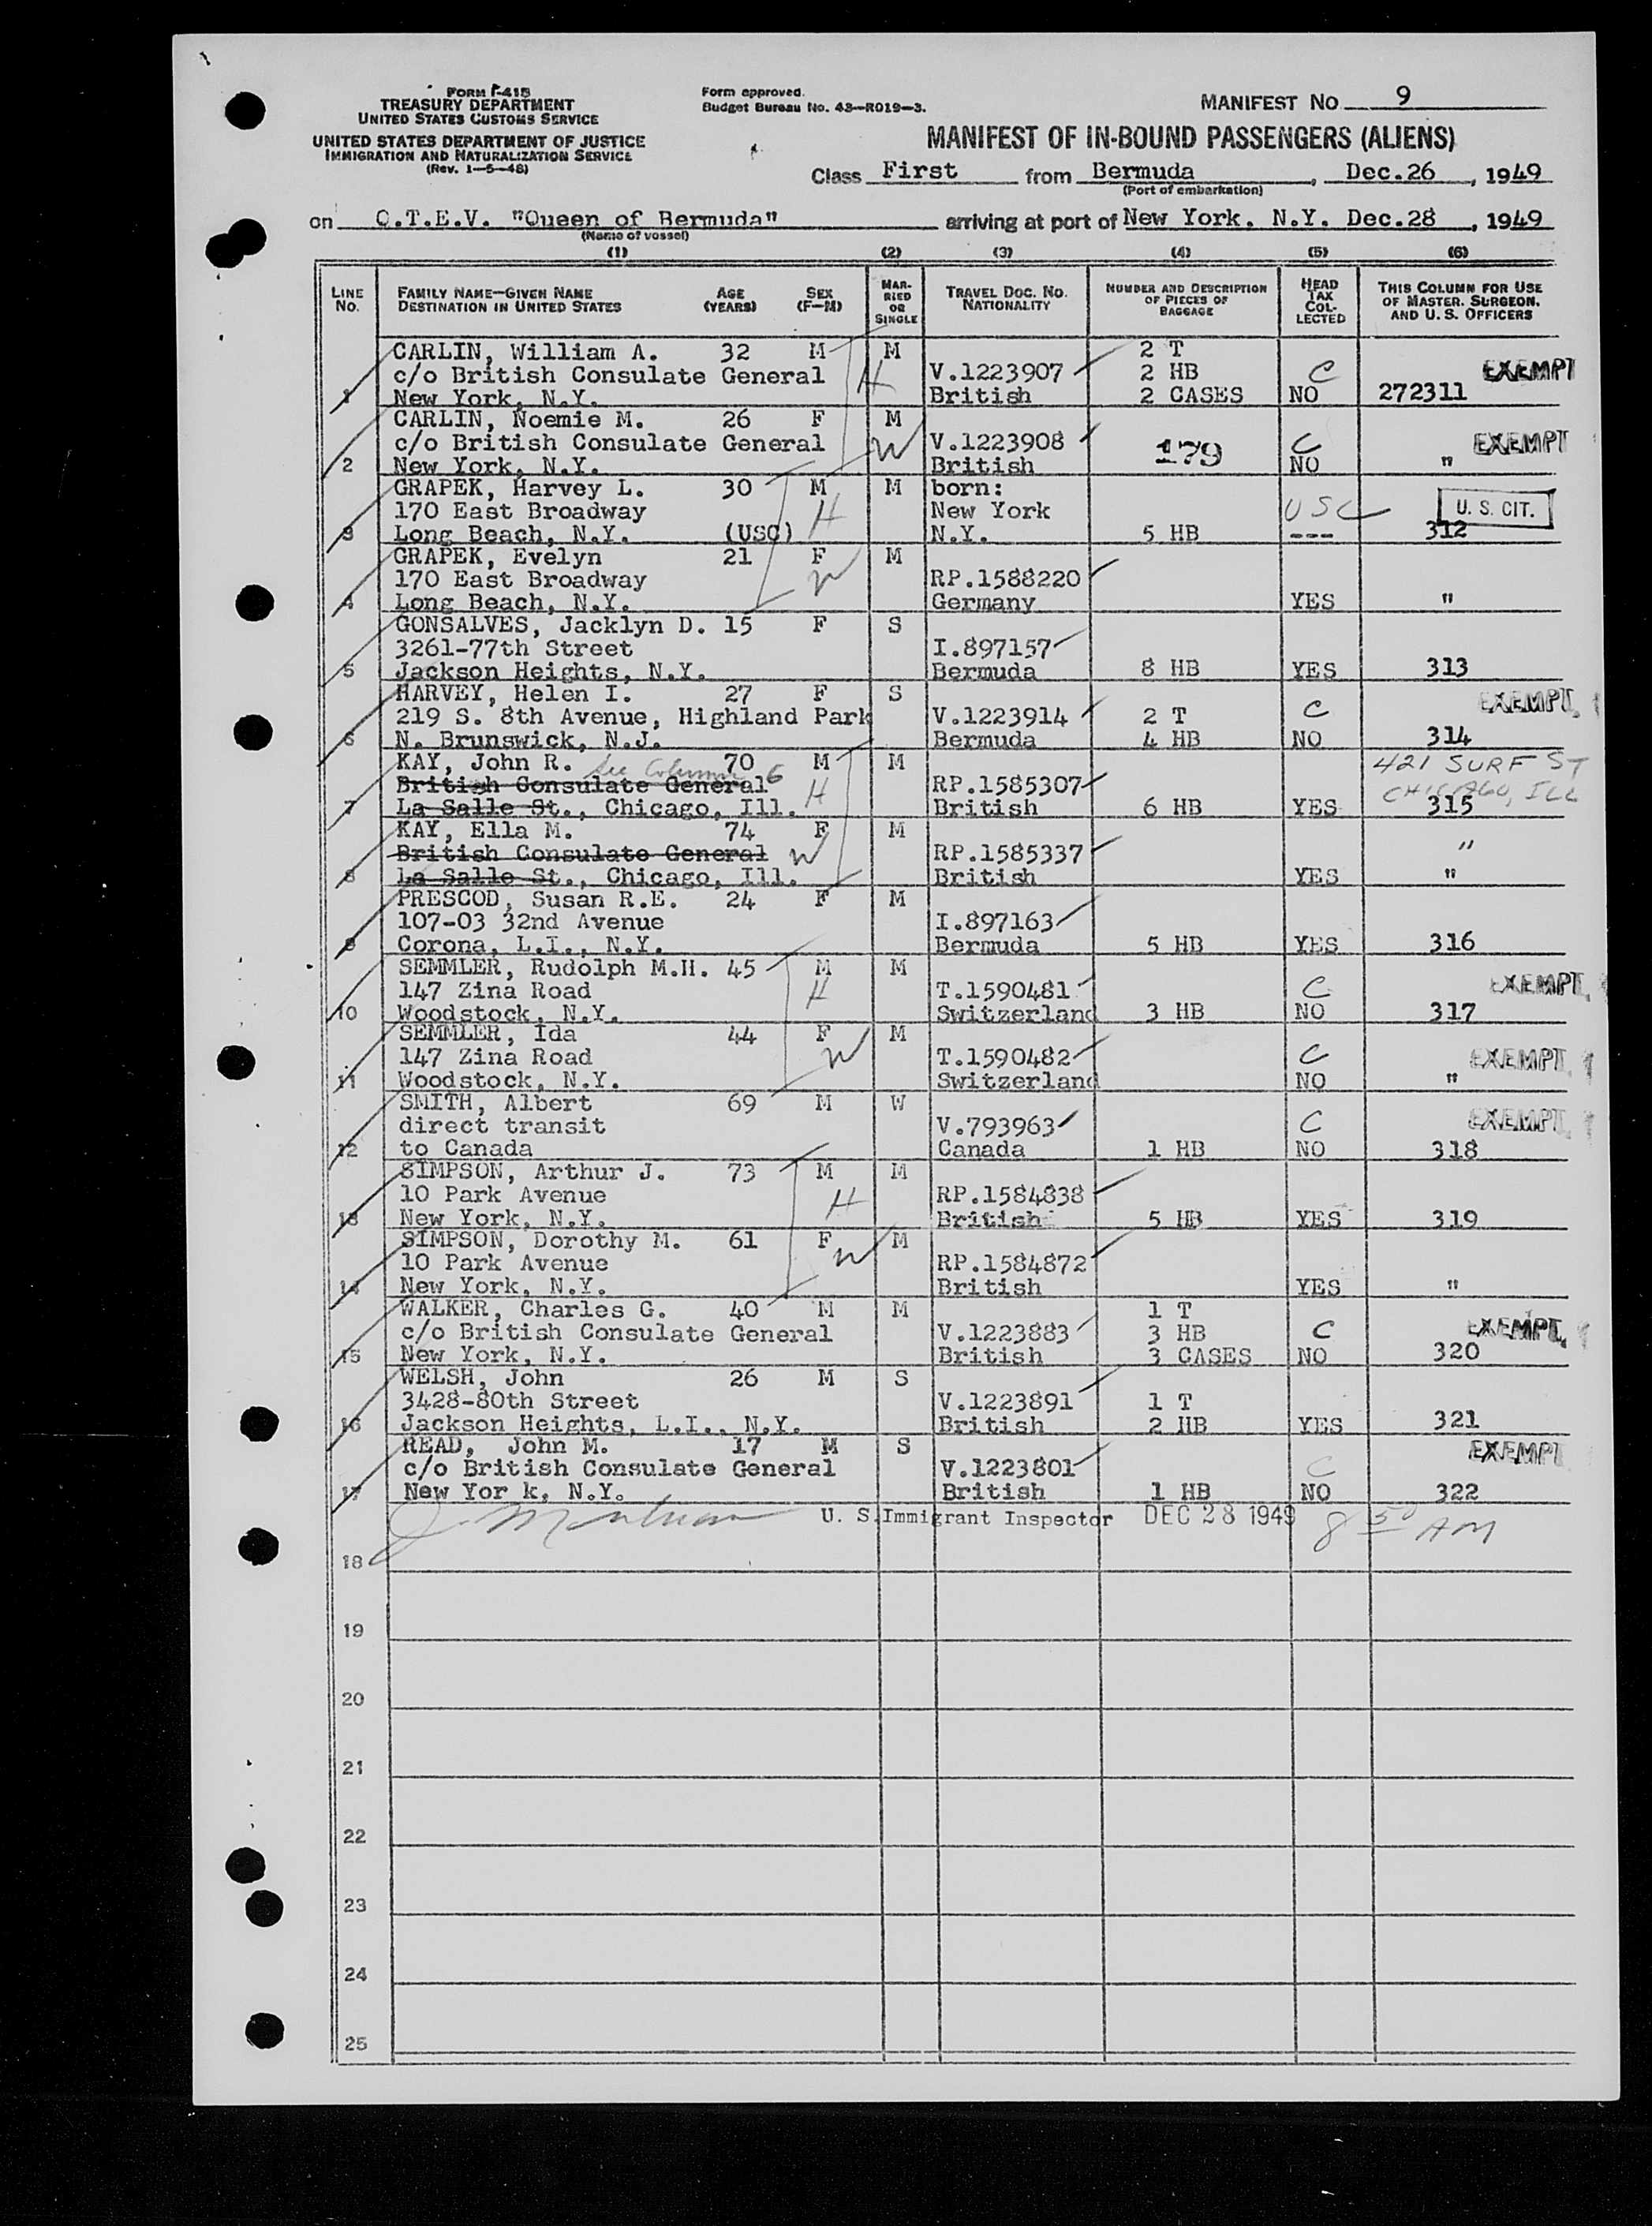 FORM I-415
TREASURY DEPARTMENT
UNITED STATES CUSTOMS SERVICE
UNITED STATES DEPARTMENT OF JUSTICE
IMMIGRATION AND NATURALIZATION SERVICE
(Rev. 1-5-48)
Form approved.
Budget Bureau No. 43-R019-3.
MANIFEST NO. 9
MANIFEST OF IN-BOUND PASSENGERS (ALIENS)
Class First from Bermuda, Dec.26, 1949
(Port of embarkation)
on Q.T.E.V. "Queen of Bermuda" arriving at port of New York, N.Y. Dec.28, 1949
(Name of vessel)
(1) (2) (3) (4) (5) (6)
LINE NO. FAMILY NAME—GIVEN NAME DESTINATION IN UNITED STATES AGE (YEARS) SEX (F—M) MARRIED OR SINGLE TRAVEL DOC. NO. NATIONALITY NUMBER AND DESCRIPTION OF PIECES OF BAGGAGE HEAD TAX COLLECTED THIS COLUMN FOR USE OF MASTER, SURGEON, AND U. S. OFFICERS
CARLIN, William A. 32 M M 2 T
c/o British Consulate General H V.1223907 2 HB C EXEMPT
1 New York, N.Y. British 2 CASES NO 272311
CARLIN, Noemie M. 26 F M
c/o British Consulate General W V.1223908 179 C EXEMPT
2 New York, N.Y. British NO "
GRAPEK, Harvey L. 30 M M born:
170 East Broadway H New York USC U. S. CIT.
3 Long Beach, N.Y. (USC) N.Y. 5 HB --- 312
GRAPEK, Evelyn 21 F M
170 East Broadway W RP.1588220
4 Long Beach, N.Y. Germany YES "
GONSALVES, Jacklyn D. 15 F S
3261-77th Street I.897157
5 Jackson Heights, N.Y. Bermuda 8 HB YES 313
HARVEY, Helen I. 27 F S EXEMPT
219 S. 8th Avenue, Highland Park V.1223914 2 T C
6 N. Brunswick, N.J. Bermuda 4 HB NO 314
KAY, John R. See Column 6 70 M M 421 SURF ST
British Consulate General H RP.1585307 CHICAGO, ILL
7 La Salle St., Chicago, Ill. British 6 HB YES 315
KAY, Ella M. 74 F M
British Consulate General W RP.1585337 "
8 La Salle St., Chicago, Ill. British YES "
PRESCOD, Susan R.E. 24 F M
107-03 32nd Avenue I.897163
9 Corona, L.I., N.Y. Bermuda 5 HB YES 316
SEMMLER, Rudolph M.H. 45 M M
147 Zina Road H T.1590481 C EXEMPT
10 Woodstock, N.Y. Switzerland 3 HB NO 317
SEMMLER, Ida 44 F M
147 Zina Road W T.1590482 C EXEMPT
11 Woodstock, N.Y. Switzerland NO "
SMITH, Albert 69 M W
direct transit V.793963 C EXEMPT
12 to Canada Canada 1 HB NO 318
SIMPSON, Arthur J. 73 M M
10 Park Avenue H RP.1584838
13 New York, N.Y. British 5 HB YES 319
SIMPSON, Dorothy M. 61 F M
10 Park Avenue W RP.1584872
14 New York, N.Y. British YES "
WALKER, Charles G. 40 M M 1 T
c/o British Consulate General V.1223883 3 HB C EXEMPT
15 New York, N.Y. British 3 CASES NO 320
WELSH, John 26 M S
3428-80th Street V.1223891 1 T
16 Jackson Heights, L.I., N.Y. British 2 HB YES 321
READ, John M. 17 M S EXEMPT
c/o British Consulate General V.1223801 C
17 New Yor k, N.Y. British 1 HB NO 322
U. S. Immigrant Inspector DEC 28 1949 8 50 AM
18
19
20
21
22
23
24
25